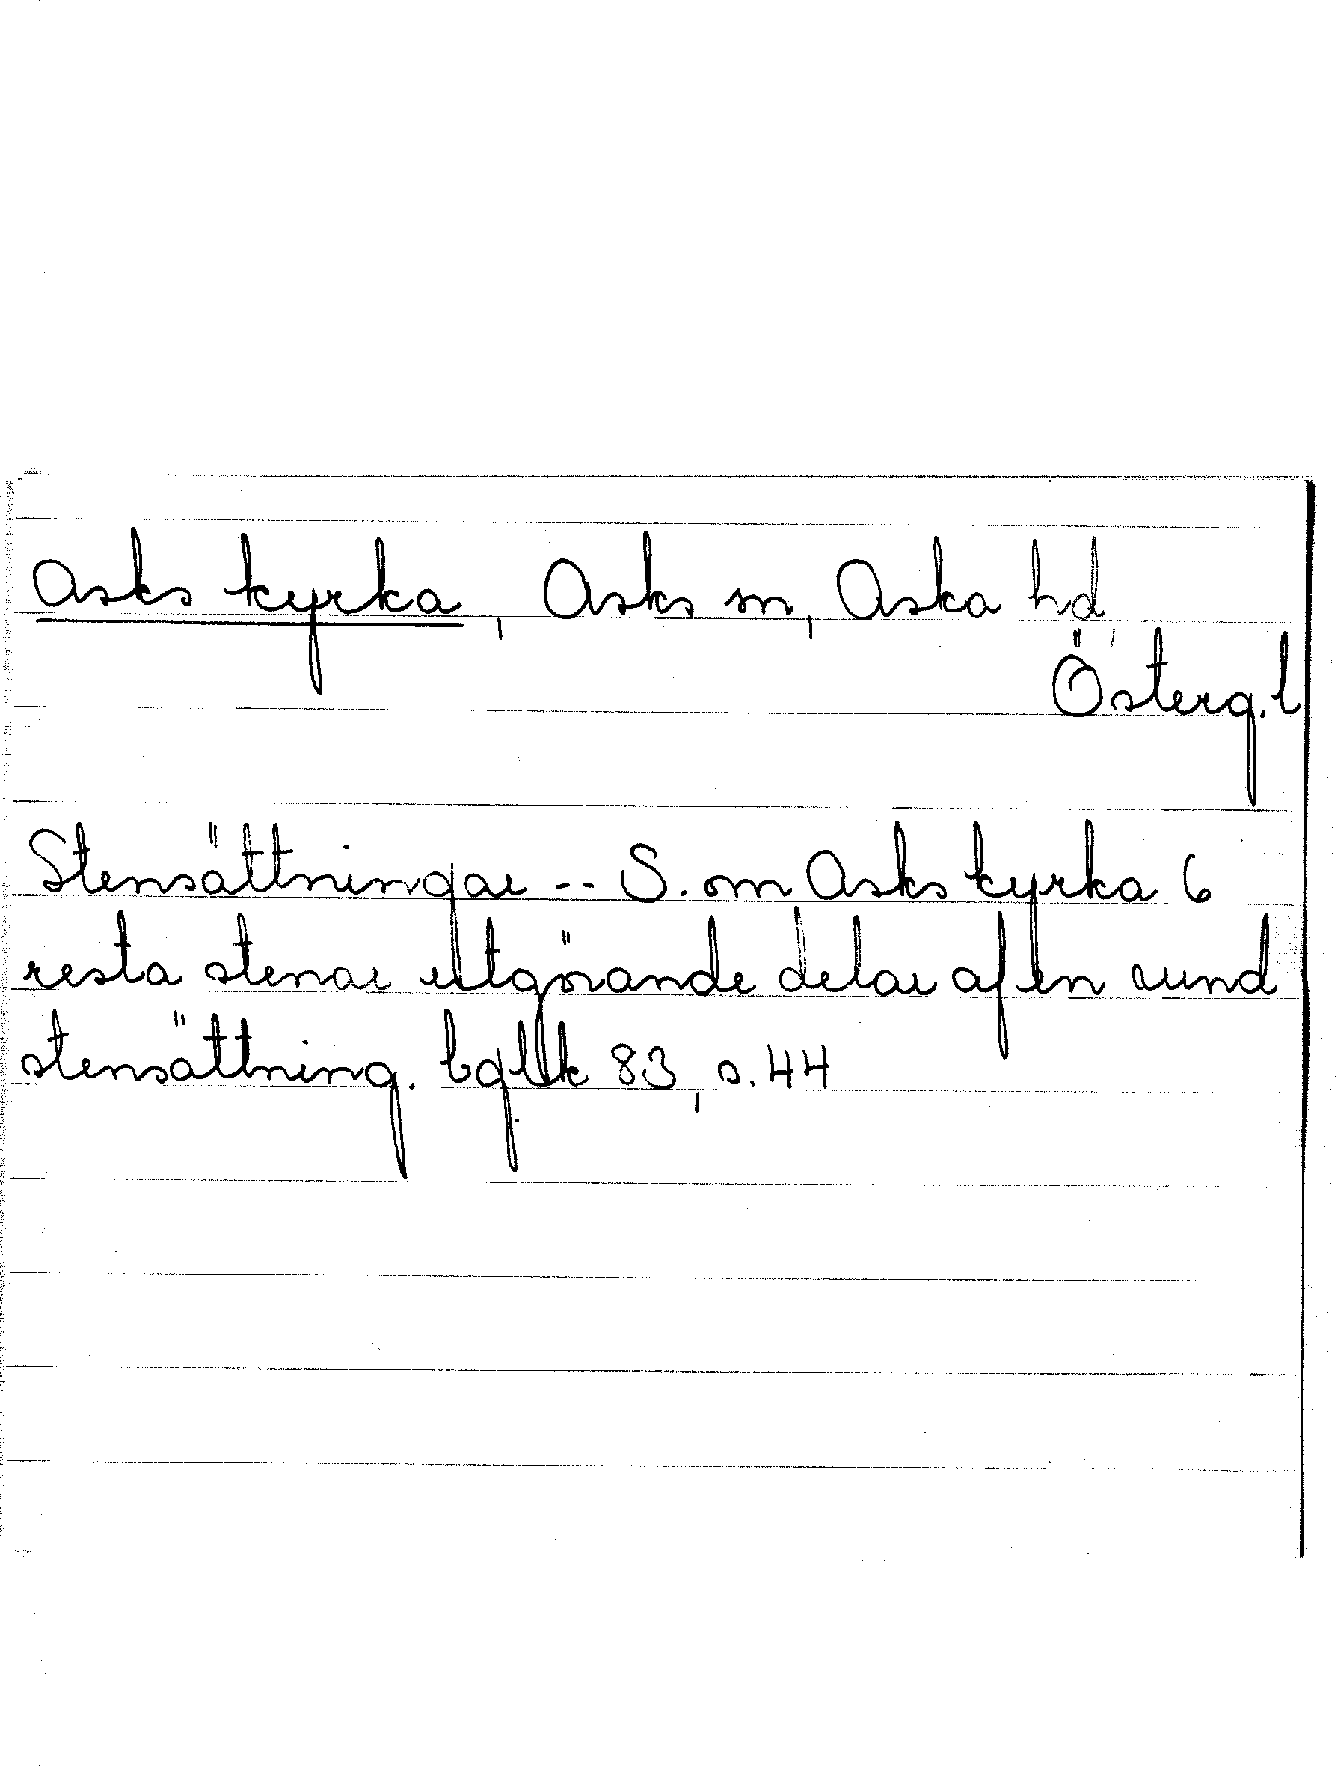 Asks kyrka, Asks sn, Aska hd,
Österg. l
Stensättningar -- S. om Asks kyrka 6
resta stenar utgörande delar af en rund
stensättning. bgblk 83, s. 44